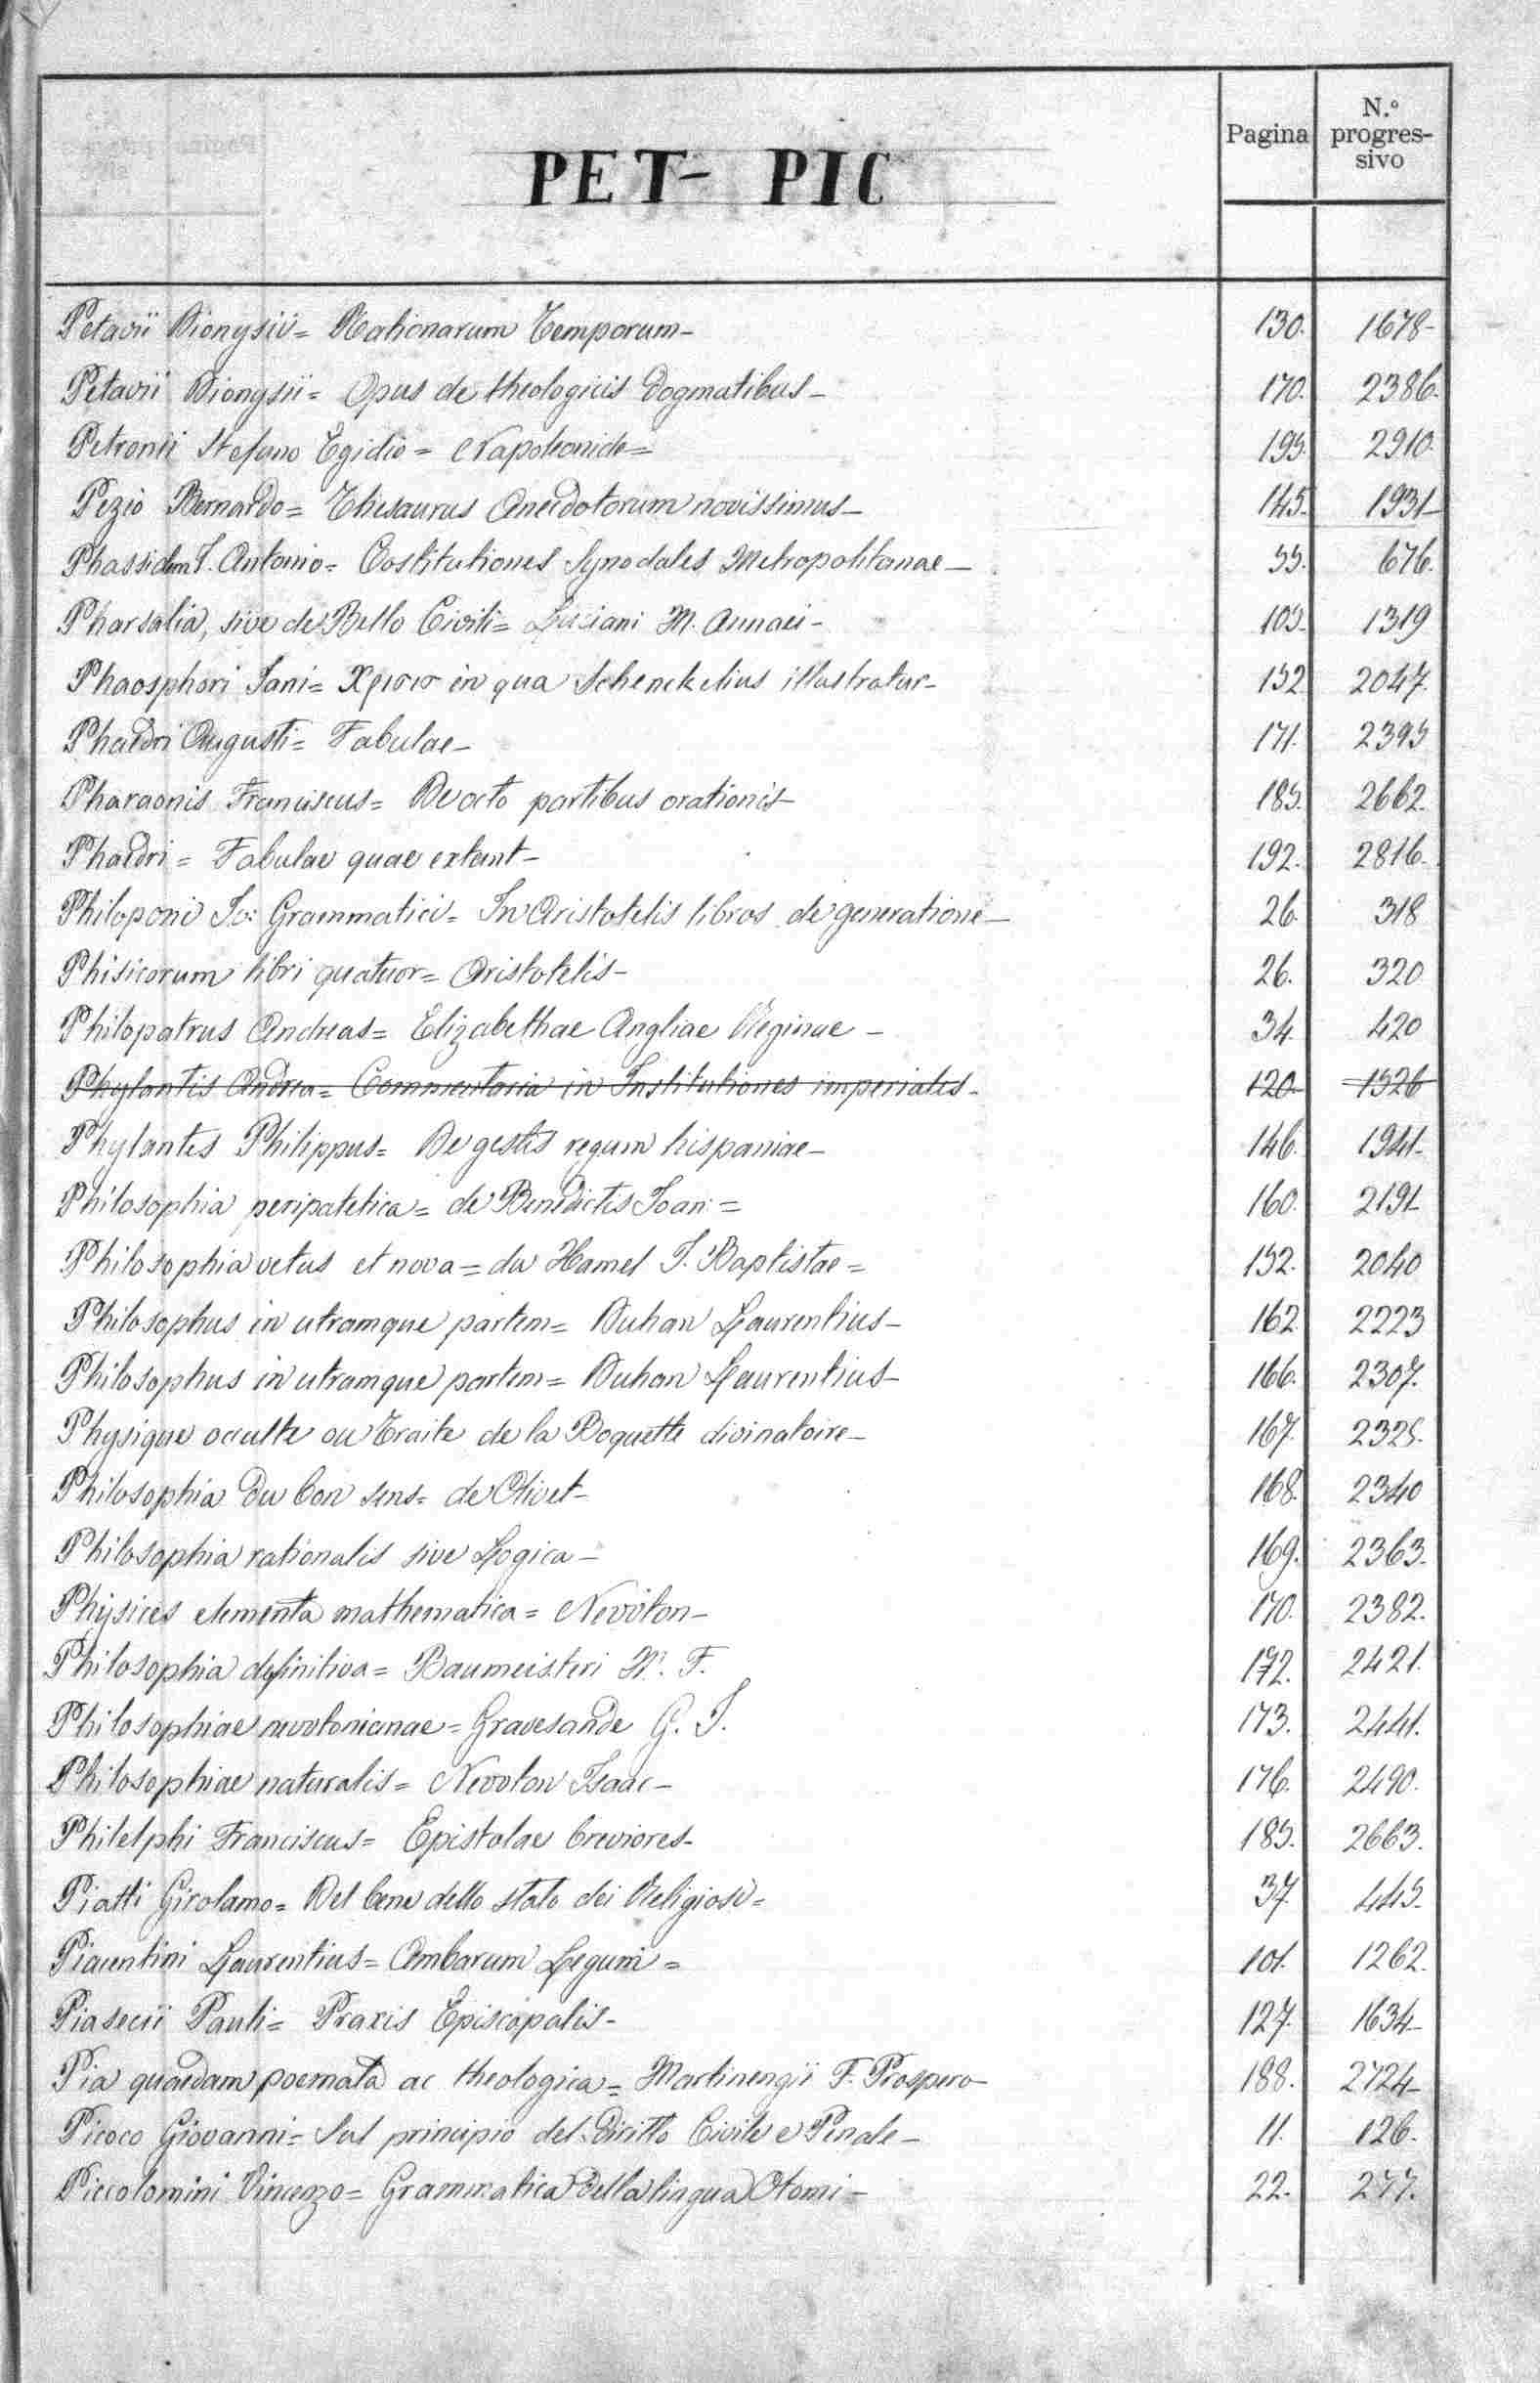 Pagina N.º progres-
sivo
PET - PIC
Petavii Dionysii = Rationarum Temporum - 130. 1678-
Petavii Dionysii = Opus de theologicis dogmatibus - 170. 2386.
Petronii Stefano Egidio = Napoleonide = 195. 2910.
Pezio Bernardo = Thesaurus Anecdotorum novissimus - 145. 1931-
Antonio = Costitutiones Synodales Metropolitanae - 55. 676.
Pharsalia, sive de Bello Civili = Luciani M. Annaei - 105. 1319
Phaosphori Jani = Χρισισ in qua Schenckelius illustratur - 152 2047.
Phaedri Augusti = Fabulae - 171. 2395
Pharaonis Franciscus = De octo partibus orationis - 185. 2662.
Phaedri = Fabulae quae extant - 192. 2816.
Philoponi Jo: Grammatici = In Aristotelis libros de generatione - 26. 318
Phisicorum libri quatuor = Aristotelis - 26. 320
Philopatrus Andreas = Elizabethae Angliae Reginae - 34. 420
Phylantis Andrea = Commentaria in Institutiones imperiales - 120. 1526
Phylantes Philippus = De gestis regum hispaniae - 146. 1941-
Philosophia peripatetica = de Benedictis Joan: = 160. 2191-
Philosophia vetus et nova = du Hamel J. Baptistae = 152. 2040
Philosophus in utramque partem = Duhan Laurentius - 162. 2223
Philosophus in utramque partem = Duhan Laurentius - 166. 2307.
Physique occulte ou Traite de la Boquette divinatoire - 167. 2325.
Philosophia du bon sens = de Olivet - 168. 2340
Philosophia rationalis sive Logica - 169. 2363.
Physices elementa mathematica = Nevvton - 170. 2382.
Philosophia definitiva = Baumeisteri F. 172. 2421.
Philosophiae nevvtonianae = Gravesande G. J. 173. 2441.
Philosophiae naturalis = Nevvton Isaac - 176. 2490.
Philelphi Franciscus = Epistolae breviores - 185. 2663.
Piatti Girolamo = Del bene dello stato dei Religiosi = 37. 445-
Piacentini Laurentius = Ambarum Legum = 101. 1262.
Piasecii Pauli = Praxis Episcopalis - 127. 1634-
Pia quaedam poemata ac theologica = Martinengii F. Prospero - 188. 2724-
Picoco Giovanni = Sul principio del Diritto Civile e Penale - 11. 126.
Piccolomini Vincenzo = Grammatica della lingua Otomi - 22. 277.